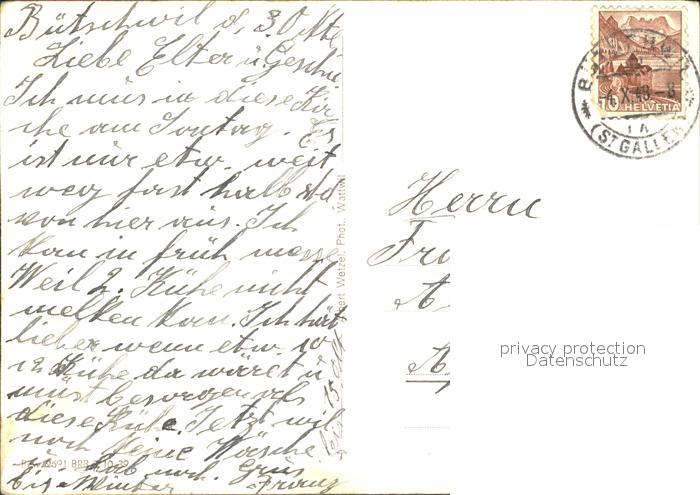 Bütschwil d, 3. Okt.
Liebe Elter u. Geschw.
Ich mus in diese Kir
che am Sontag. Es
ist nur etw. weit
weg fast halb std
von hier aus. Ich
kan in früh messe
Weil 2. Kühe nicht
melken kan. Ich hät
lieber wenn etw. 10
Kühe da wäret u
müst besorgen als
diese Kühe. Jetzt wil
noch keine Wäsche
hab noch. Grus
bis Winter Franz
Wetzel, Phot. Wattwil
BRB 10.39
X.43-8
10 HELVETIA
(ST. GALLEN)
Herrn
Fr
A
A
privacy protection
Datenschutz